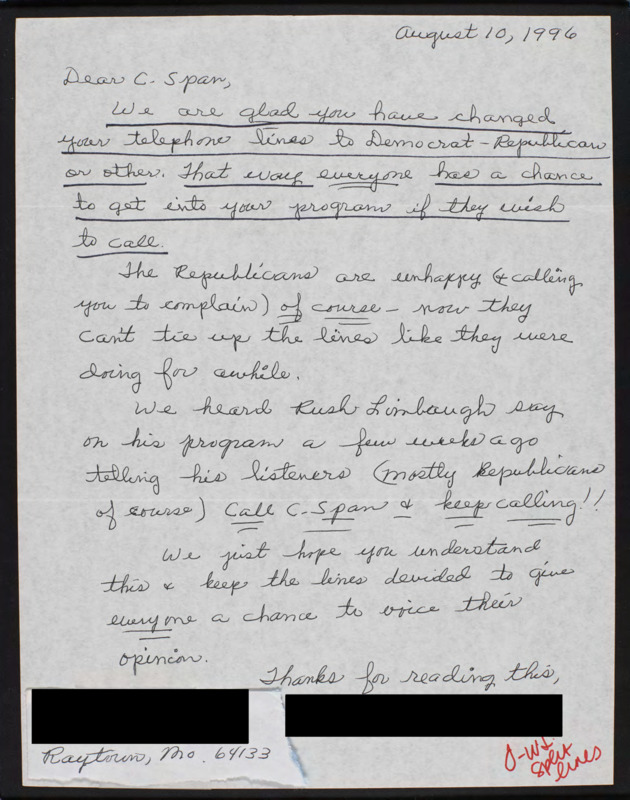 August 10, 1996
Dear C-Span,
We are glad you have changed
your telephone lines to Democrat-Republican
or other. That way everyone has a chance
to get into your program if they wish
to call.
The Republicans are unhappy (& calling
you to complain) of course - now they
can't tie up the lines like they were
doing for awhile.
We heard Rush Limbaugh say
on his program a few weeks ago
telling his listeners (mostly Republicans
of course) Call C-Span & keep calling!!
We just hope you understand
this & keep the lines devided to give
everyone a chance to voice their
opinion.
Thanks for reading this,
Raytown, Mo. 64133
split
lines